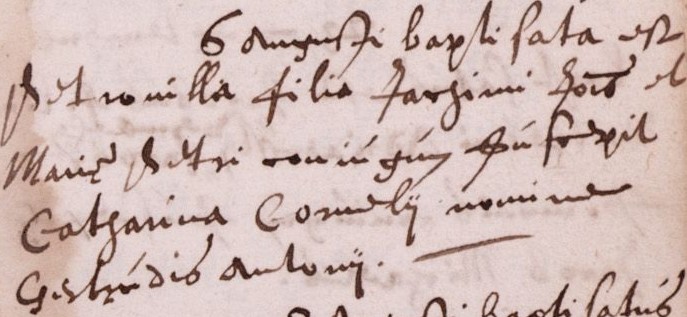 6 Augusti baptisata est
Petronilla filia Jachimi Joīs et
Marię Petri coniugum suscepit
Catharina Cornelij nomine
Gertrudis Antonij.
baptisatus